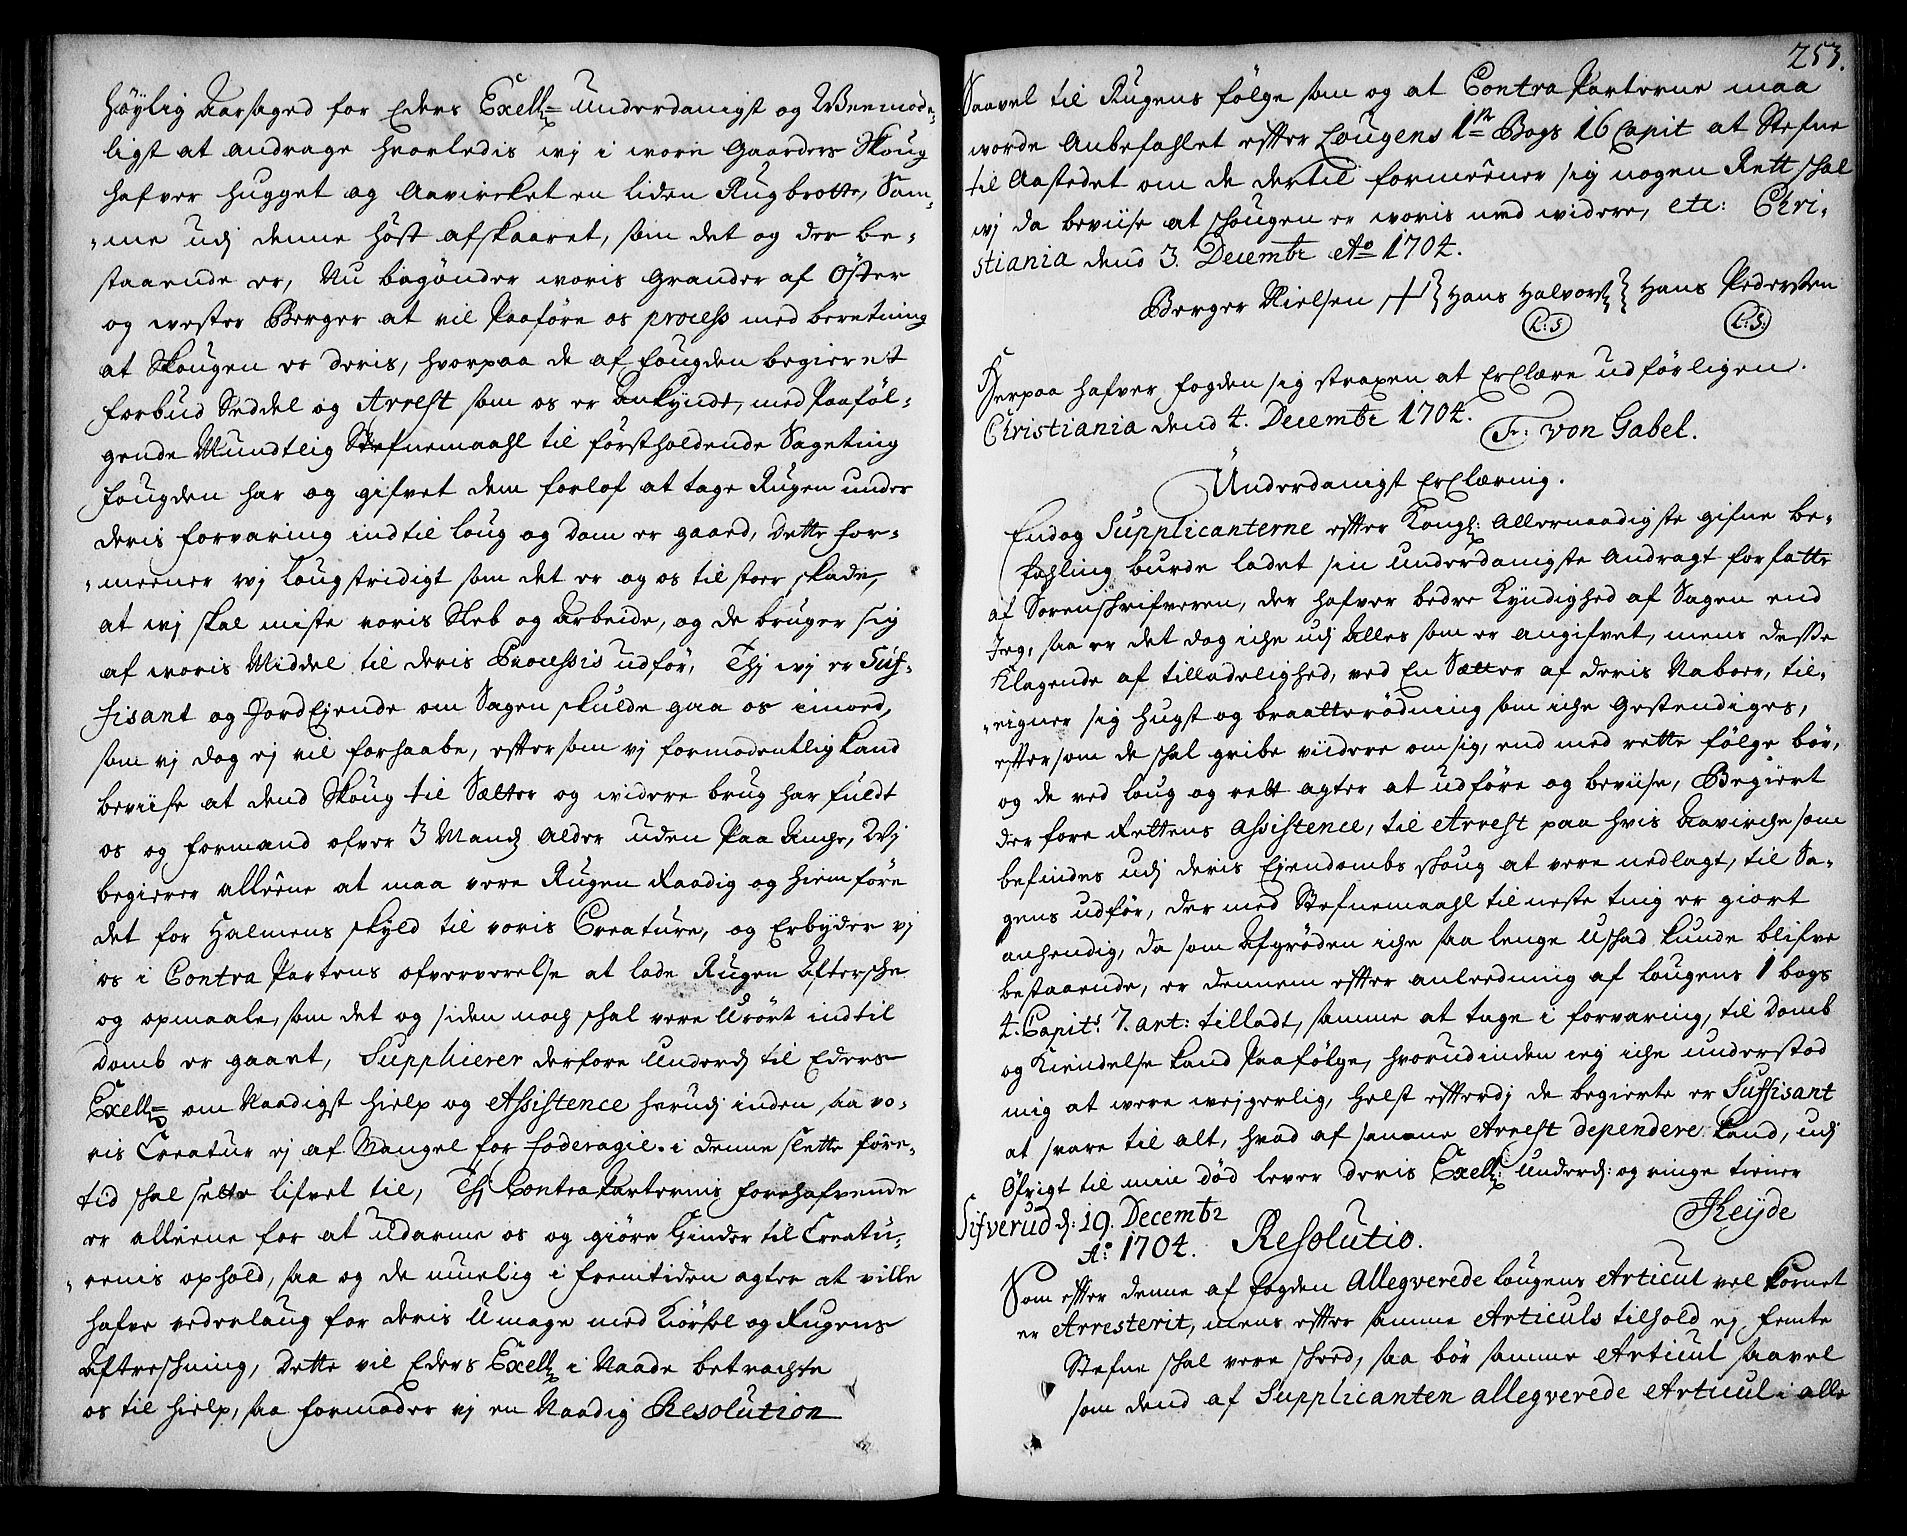 höylig Aarsaged for Eders Excell= underdanigst og Weemode-
ligst at andrage hvorledis wj i worn Gaarders Skoug
hafver hugget og Aavircket en liden Rugbrotte, Sam-
me udj denne höst afskaaret, som det og der be-
staaende er, Nu begönder woris Grander af Öster
og wester Berger at vil Paaföre os process med beretning
at Skougen er deris, hvorpaa de af fougden begieret
forbud Seddel og Arrest som os er ankyndt, med Paaföl-
gende Mundtlig Stefnemaahl til förstholdende Sageting
fougden har og gifvet dem forlof at tage Rugen under
deris forvaring indtil loug og Dom er gaaed, Dette for-
meener wj lougstridigt som det er og os til stoer skade,
at wj skal miste voris Sleb og Arbeide, og de bruger sig
af woris Middel til deris Processis udför, Thj wj er Suf-
fisant og JordEjende om Sagen skulde gaa os imod,
som vj dog ej vil forhaabe, efftersom vj formodentlig kand
beviise at dend Skoug til Sætter og widere brug har fuldt
os og formand ofver 3 Mands Alder uden Paa Anche, Wj
begierer alleene at maa vere Rugen Raadig og hiemföre
det for Halmens skyld til voris Creature, og Erbyder vj
os i Contra Partens ofververelse at lade Rugen Aftersche
og opmaale, som det og siden noch schal vere Urört indtil
domb er gaaet, Supplicerer derfore Underd: til Eders
Excell= om Naadigst hielp og Assistence herudj inden, saa vo-
ris Creatur ej af Mangel for foderagie i denne slette före-
tid schal sette lifvet til, Thj Contra Parternis forehafvende
er alleene for at udarme os og giöre Hinder til Creatu-
rernis ophold, saa og de muelig i fremtiden agter at ville
hafve vederlaug for deris Umage med Kiörsel og Rugens
Aftreschning, Dette vil Eders Excell: i Naade betrachte
os til hielp, saa formoder vj en Naadig Resolution
253.
Saavel til Rugens fölge som og at Contra Parterne maa
worde Anbefahlet effter Lougens 1ste Bogs 16 Capit at Stefne
til Aastedet om de dertil formeener sig nogen Rett schal
wj da beviise at schougen er woris med widere, etc: Chri-
stiania dend 3. Decembr Ao 1704.
Berger Nielsen + } Hans Halvors: } Hans Pedersten
L:S L:S:
Herpaa hafver fogden sig straxen at Erclære udförligen.
Christiania dend 4. Decembr 1704. Fr: von Gabel.
Underdanigst Erclæring.
Endog Supplicanterne effter Kongl: Allernaadigste gifne be-
fahling burde ladet sin underdanigste Andragt forfatte
af Sorenschrifveren, der hafver bedre Kyndighed af Sagen end
Jeg, saa er det dog iche udj Alles som er angifvet, mens desse
Klagende af tilladelighed, ved En Sætter af deris Naboer, til-
eigner sig hugst og braatterödning som iche Gestendiges,
efftersom de schal gribe viidere om sig, end med rette fölge bör,
og de ved loug og rett agter at udföre og beviise, Begiert
derfore Rettens Assistence, til Arrest paa hvis Aavirche som
befindes udj deris Eiendombs schoug at vere nedlagt, til Sa-
gens udför, der med Stefnemaahl til neste ting er giort
anhendig, da som Afgröden iche saa lenge Uschad kunde blifve
bestaaende, er dennem effter anleedning af Lougens 1 bogs
4. Capits 7. art: tilladt, samme at tage i forvaring, til Domb
og Kiendelse kand Paafölge, hvorudinden ieg iche understod
mig at were weigerlig, helst efterdj de begierte er Suffisant
at svare til alt, hvad af samme Arrest dependere kand, udj
Öfrigt til min död lever deris Excell: underd: og ringe tiener
Sifverud d: 19. Decembr Heyde
Ao 1704. Resolutio.
Som effter denne af fogden Allegverede Lougens Articul vel Kornet
er Arresterit, mens effter samme Articuls tilhold ej femte
Stefne schal vere scheed, saa bör samme Articul saavel
som dend af Supplicanten allegverede Articul i alle